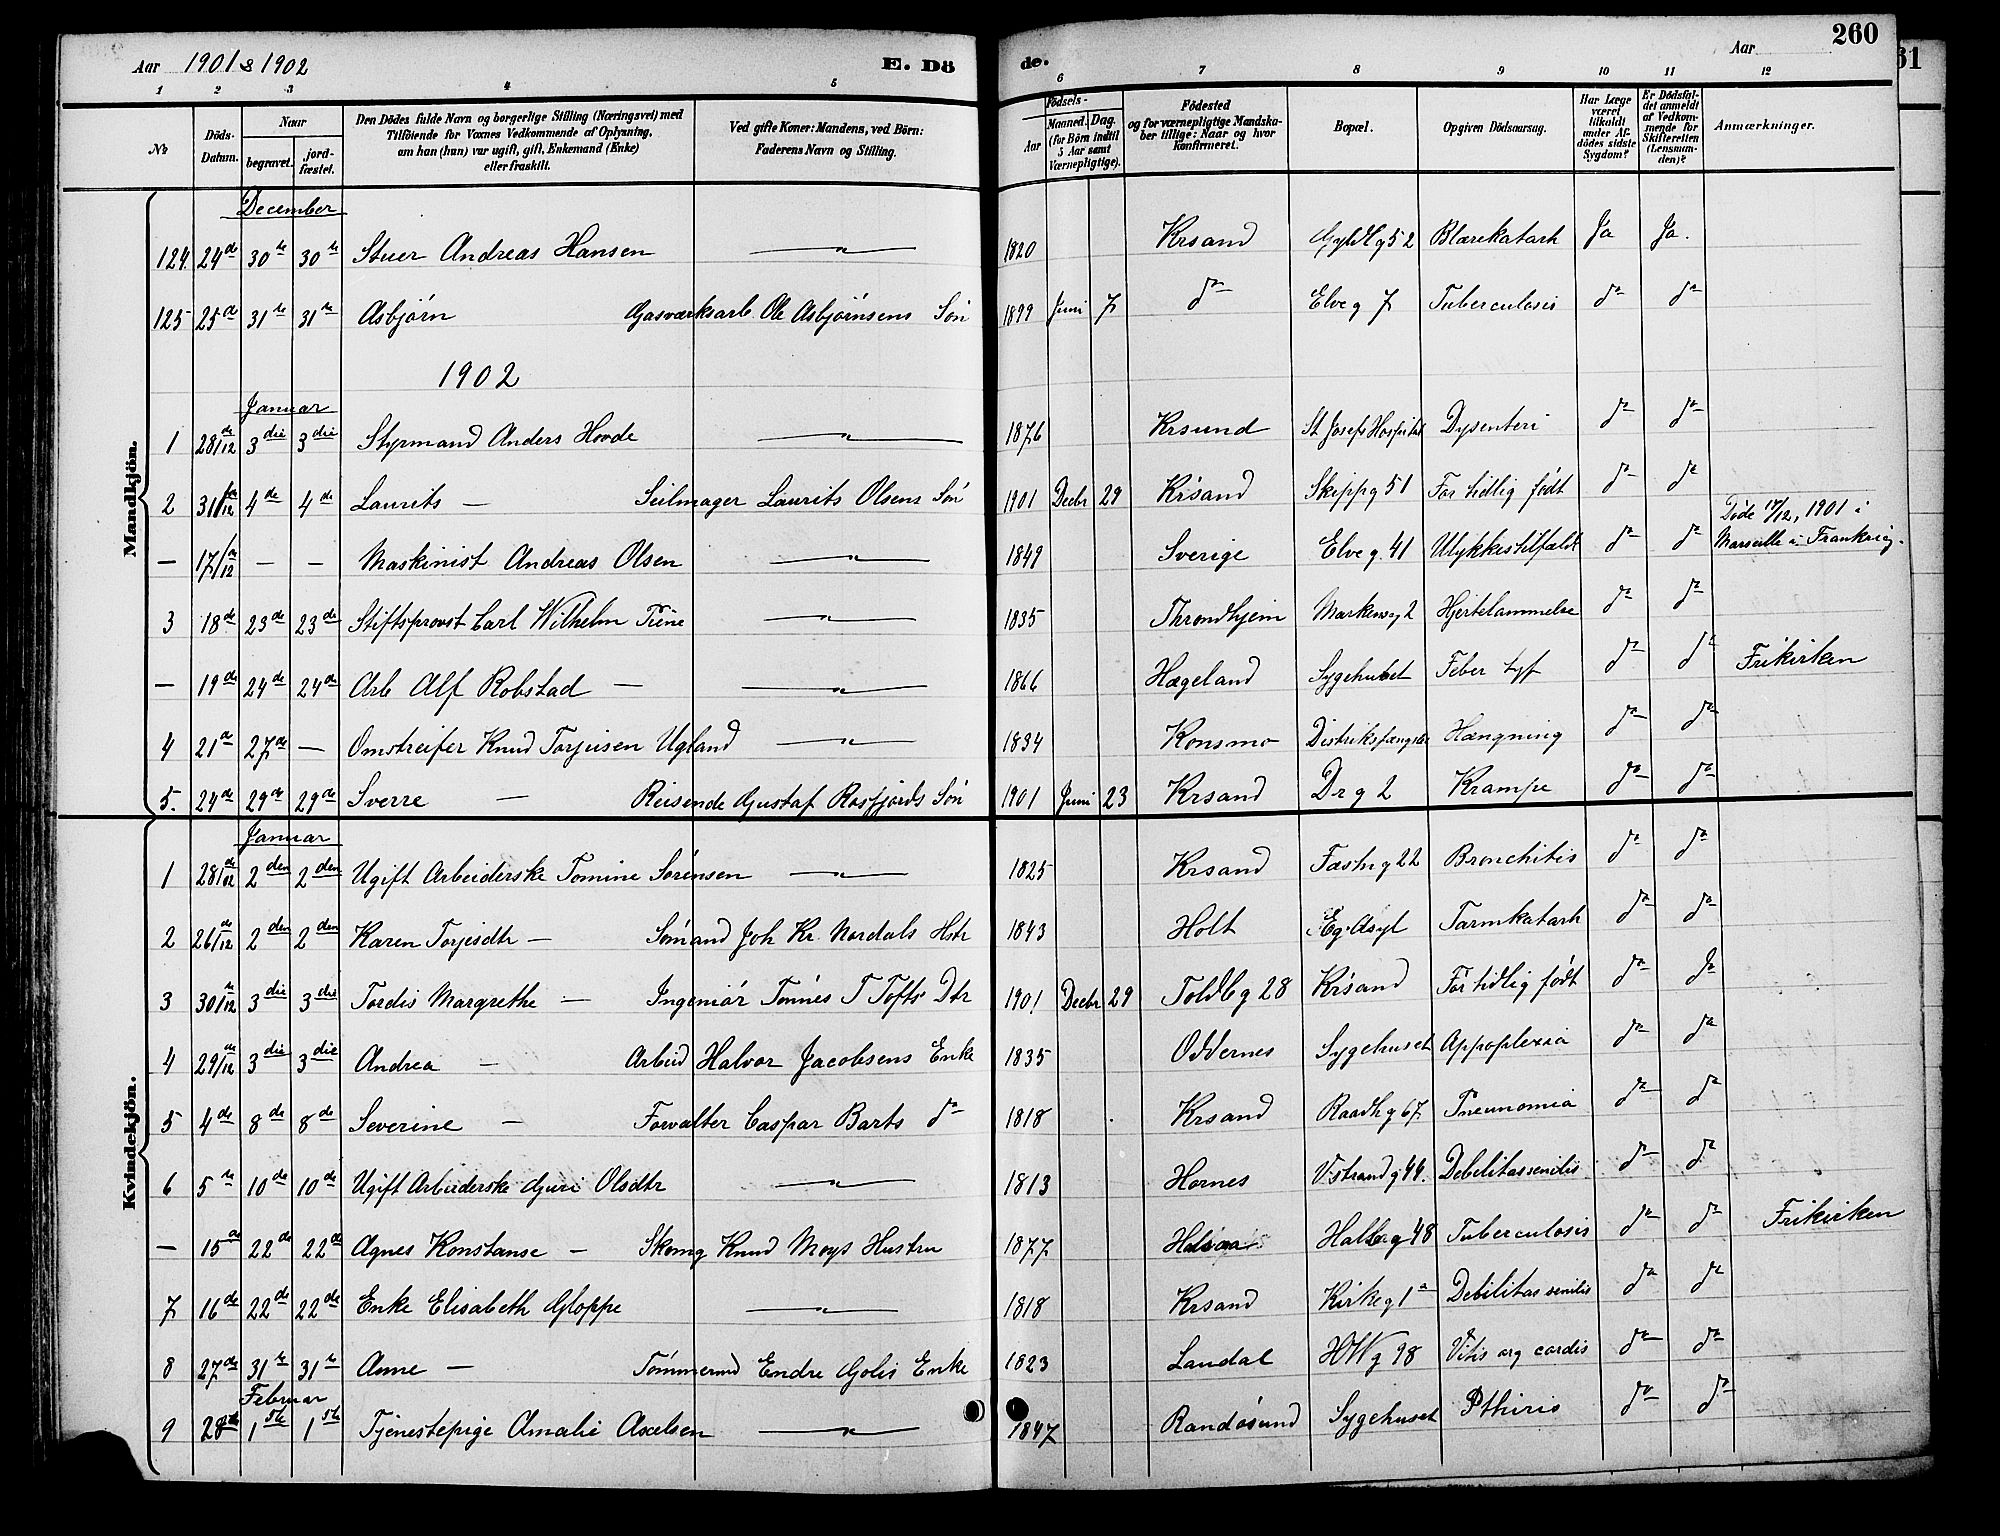 Aar 1901 & 1902 E. Dö
de. Aar 260
61
1 2 3 4 5 6 7 8 9 10 11 12
№ Döds-Datum. Naar begravet. jordfæstet. Den Dödes fulde Navn og borgerlige Stilling (Næringsvei) med Tilföiende for Voxnes Vedkommende af Oplysning, om han (hun) var ugift, gift, Enkemand (Enke) eller fraskilt. Ved gifte Koner: Mandens, ved Börn: Faderens Navn og Stilling. Födsels- Aar Maaned. Dag. (for Börn indtil 5 Aar samt Værnepligtige). Födested og for værnepligtige Mandskaber tillige: Naar og hvor konfirmeret. Bopæl. Opgiven Dödsaarsag. Har Læge været tilkaldt under Afdödes sidste Sygdom? Er Dödsfaldet anmeldt af Vedkommende for Skifteretten (Lensmanden)? Anmærkninger.
Mandkjön.
December
124. 24de 30te 30te Stuer Andreas Hansen — " — 1820 Krsand Gyldlg 52 Blærekatarh Ja Ja.
125 25de 31te 31te Asbjörn Gasværksarb. Ole Asbjörnsens Sön 1899 Juni 7 do Elveg 7 Tuberculosis do do
1902
Januar
1 28/12 3die 3die Styrmand Anders Hovde — " — 1876 Krsund St Josefs Hospital Dysenteri do do
2 31/12 4de 4de Laurits — Seilmager Laurits Olsens Sön 1901 Decbr 29 Krsand Skippg 51 For tidlig födt do do
— 17/12 — — Maskinist Andreas Olsen — " — 1849 Sverige Elveg. 41 Ulykkestilfældt do do Döde 17/12, 1901 i Marseille i Frankrig.
3 18de 23de 23de Stiftsprovst Carl Wilhelm — " — 1835 Throndhjem Markensg 2 Hjertelammelse do do
— 19de 24de 24de Arb Alf Robstad — — " — 1866 Hægeland Sygehuset Feber tyf do do Frikirken
4 21de 27de — Omstreifer Knud Torjeisen Ugland — " — 1834 Konsmo Distriksfængslet Hængning do do
5. 24de 29de 29de Sverre — Reisende Gustaf Rosfjords Sön 1901 Juni 23 Krsand Drg 2 Krampe do do
Kvindekjön.
Januar
1 28/12 2den 2den Ugift Arbeiderske Tomine Sörensen — " — 1825 Krsand Fæstng 22 Bronchitis do do
2 26/12 2den 2den Karen Torjesdtr — Sömand Joh Kr. Nordals Hstr 1843 Holt Eg. Asyl Tarmkatarh do do
3 30/12 3die 3die Tordis Margrethe — Ingeniör Tönnes T Tofts Dtr 1901 Decbr 29 Toldbg 28 Krsand For tidlig födt do do
4 29/12 3die 3die Andrea — Arbeid Halvor Jacobsens Enke 1835 Oddernes Sygehuset Appoplexia do do
5 4de 8de 8de Severine — Forvalter Caspar Barts do 1818 Krsand Raadhg 67 Pneunomia do do
6 5te 10de 10de Ugift Arbeiderske Guri Olsdtr — " — 1813 Hornes V.strandg 44. Debilitas senilis do do
— 15de 22de 22de Agnes Konstanse — Skomg Knud Moys Hustru 1877 Hallbg 48 Tuberculosis do do Frikirken
7 16de 22de 22de Enke Elisabeth Gloppe — " — 1818 Krsand Kirkeg 1a Debilitas senilis do do
8 27de 31te 31te Anne — Tömmermd Endre Golis Enke 1823 Landal HWg 98 Vitis org cordis do do
Februar
9 28de 1ste 1ste Tjenestepige Amalie Axelsen — " — 1847 Randösund Sygehuset Pthiris do do